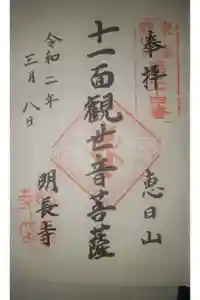 奉拝
恵日山
十一面觀世音菩薩
明長寺
令和二年
三月八日